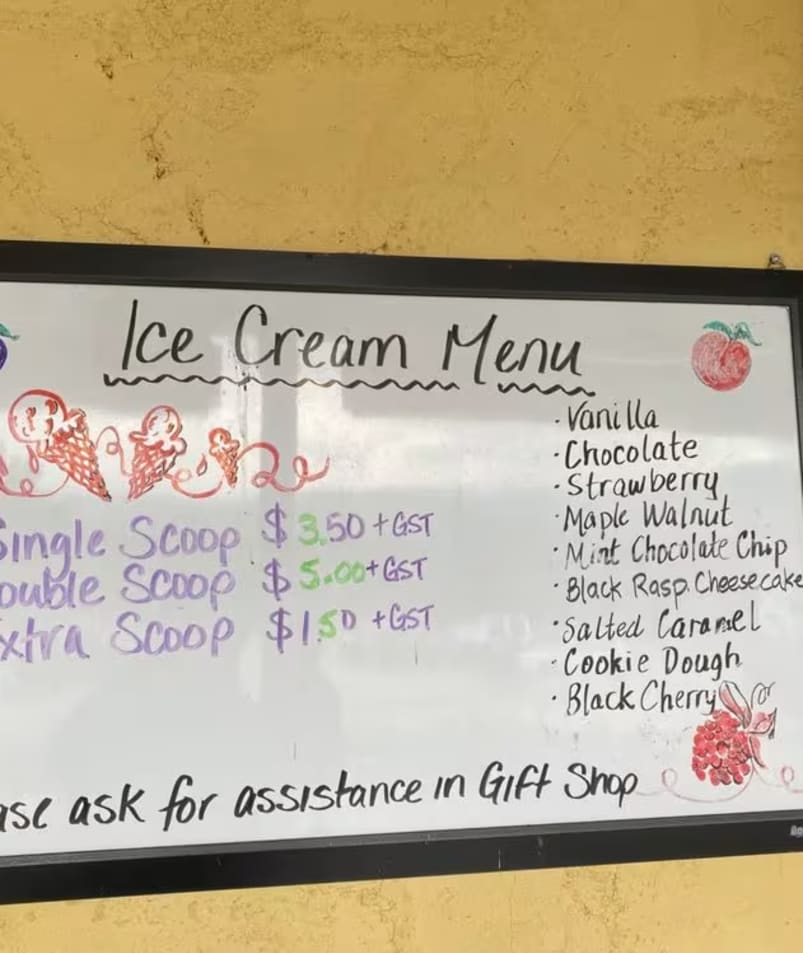 Ice Cream Menu
Single Scoop $3.50 + GST
ouble Scoop $5.00 + GST
xtra Scoop $1.50 + GST
· Vanilla
· Chocolate
· Strawberry
· Maple Walnut
· Mint Chocolate Chip
· Black Rasp. Cheesecake
· Salted Caramel
· Cookie Dough
· Black Cherry
ase ask for assistance in Gift Shop